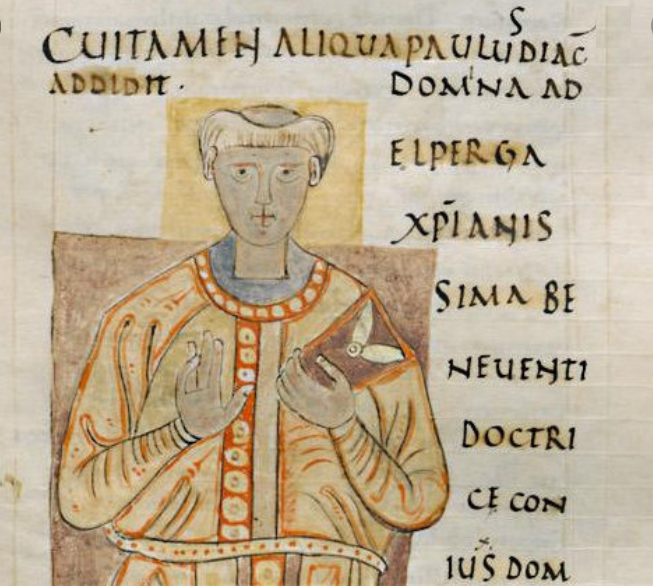 CUITAMEN ALIQUA PAULUS DIAC̄
ADDIDIT· DOMNA AD
ELPERGA
XP̄IANIS
SIMA BE
NEVENTI
DOCTRI
CE CON
IUS DOM